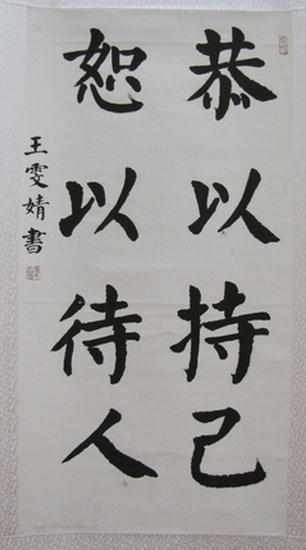 恭以持己
恕以待人
王雯婧書